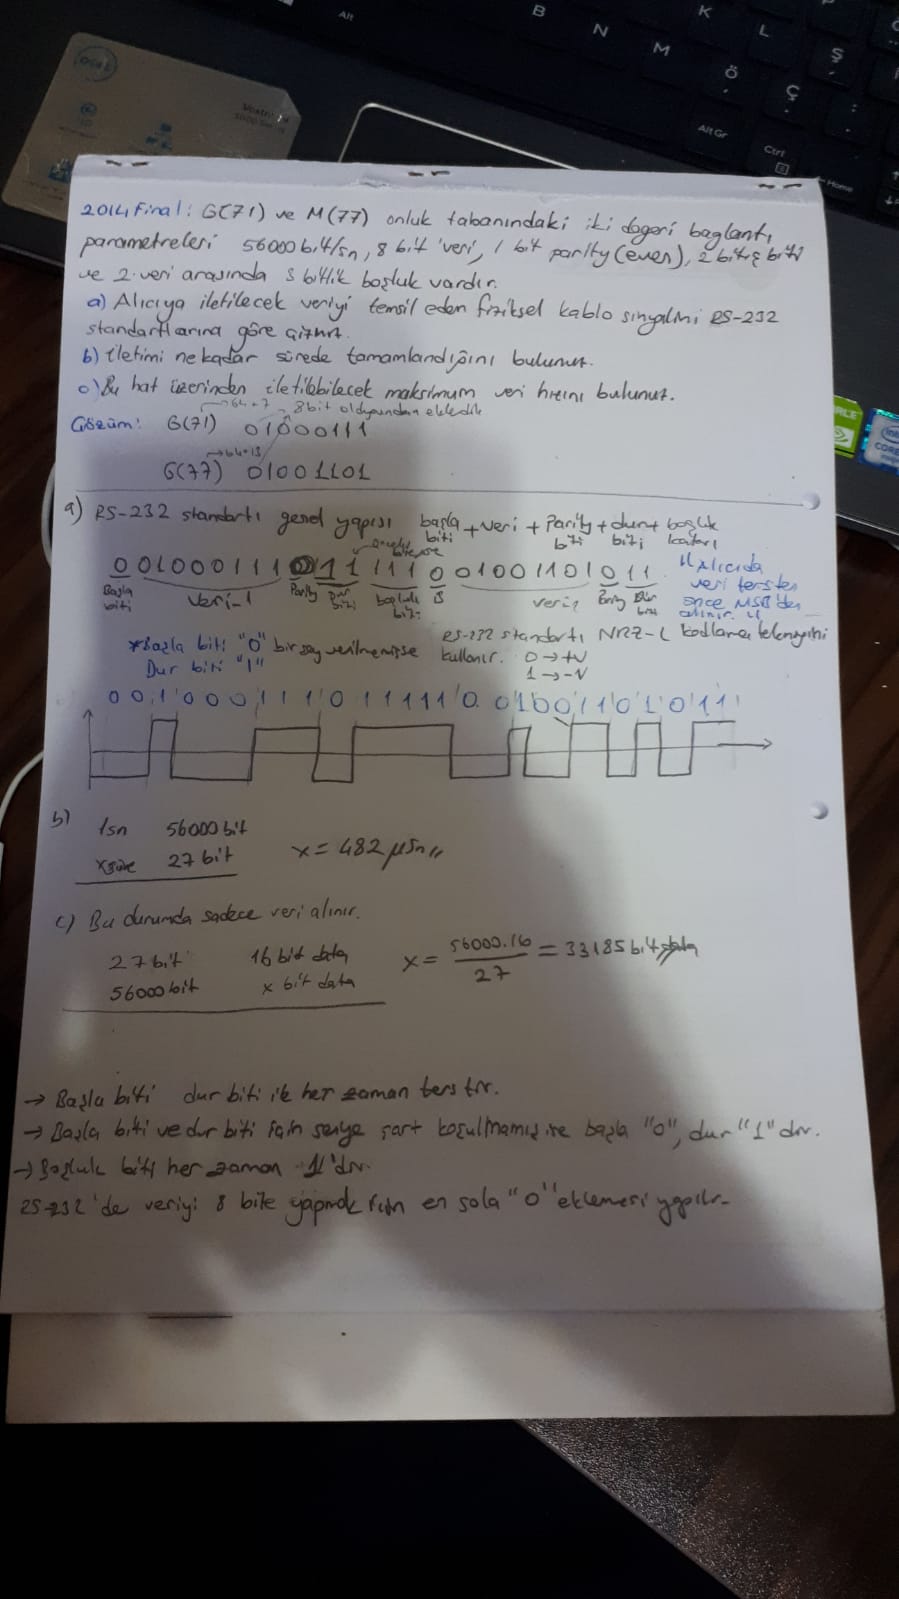 B
N
M
K
L
Ö
Ş
Ç
Alt
Alt Gr
Ctrl
Home
DELL
Vostro
CORE
2014 Final: G(71) ve M(77) onluk tabanındaki iki degeri bağlantı
parametreleri 56000 bit/sn, 8 bit veri, 1 bit parity (even), 2 bitiş biti
ve 2. veri arasında 3 bitlik boşluk vardır.
a) Alıcıya iletilecek veriyi temsil eden fiziksel kablo sinyalini RS-232
standartlarına göre çiziniz.
b) İletimi ne kadar sürede tamamlandığını bulunuz.
c) Bu hat üzerinden iletilebilecek maksimum veri hızını bulunuz.
→64+7
8 bit olduğundan ekledik
Çözüm: G(71) 01000111
→64+13
G(77) 01001101
a) RS-232 standartı genel yapısı başla biti + veri + Parity biti + durma biti boşluk
0 01000111 0 11 111 0 01001101 0 11
Başla biti
veri-1
Parity
Dur biti
B
Parity
"Alıcıda
veri tersten
önce MSB'den
alınır."
*Başla biti "0" bir şey verilmemişse
Dur biti "1"
RS-232 standartı NRZ-L kodlama
kullanır. 0→+V
1→-V
0 0 1 0 0 0 1 1 1 0 1 1 1 1 1 0 0 1 0 0 1 1 0 1 0 1 1
b)
1sn 56000 bit
x süre 27 bit x = 482 µSn
c) Bu durumda sadece veri alınır.
27 bit 16 bit data
56000 bit x bit data
x = 56000.16 / 27 = 33185 bit data
→ Başla biti dur biti ile her zaman terstir.
→ Başla biti ve dur biti için şart koşulmamış ise başla "0", dur "1" dir.
→ Boşluk biti her zaman 1'dir.
RS-232'de veriyi 8 bite yapmak için en sola "0" eklemesi yapılır.